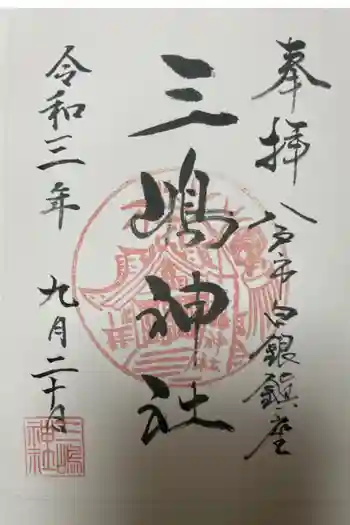 奉拝
八戸市白銀鎮座
三嶋神社
令和三年
九月二十日
三嶋神社